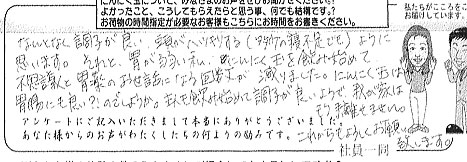 にんにく玉について、みなさまのお声をお聞かせください!!
よかったこと、こうしてもらえたらと思う事、何でも結構です?
お荷物の時間指定が必要なお客様もこちらにお時間をお書きください。
私たちがこころをこ
お届けしています。
なんとなく調子が良い、頭がハッキリする(夕方の寝不足でも)ように
思います。それと、胃が弱いため、にんにく玉を飲み始めて
不思議と胃薬のお世話になる回数が減りました。にんにく玉は
胃腸にも良い?のでしょうか。主人も飲み始めて調子が良いようで、我が家は
もう離せません。
アンケートにご記入いただきまして本当にありがとうございました。
あなた様からのお声がわたくしたちの何よりの励みです。
これからもよろしくお願い
致します。
社員一同